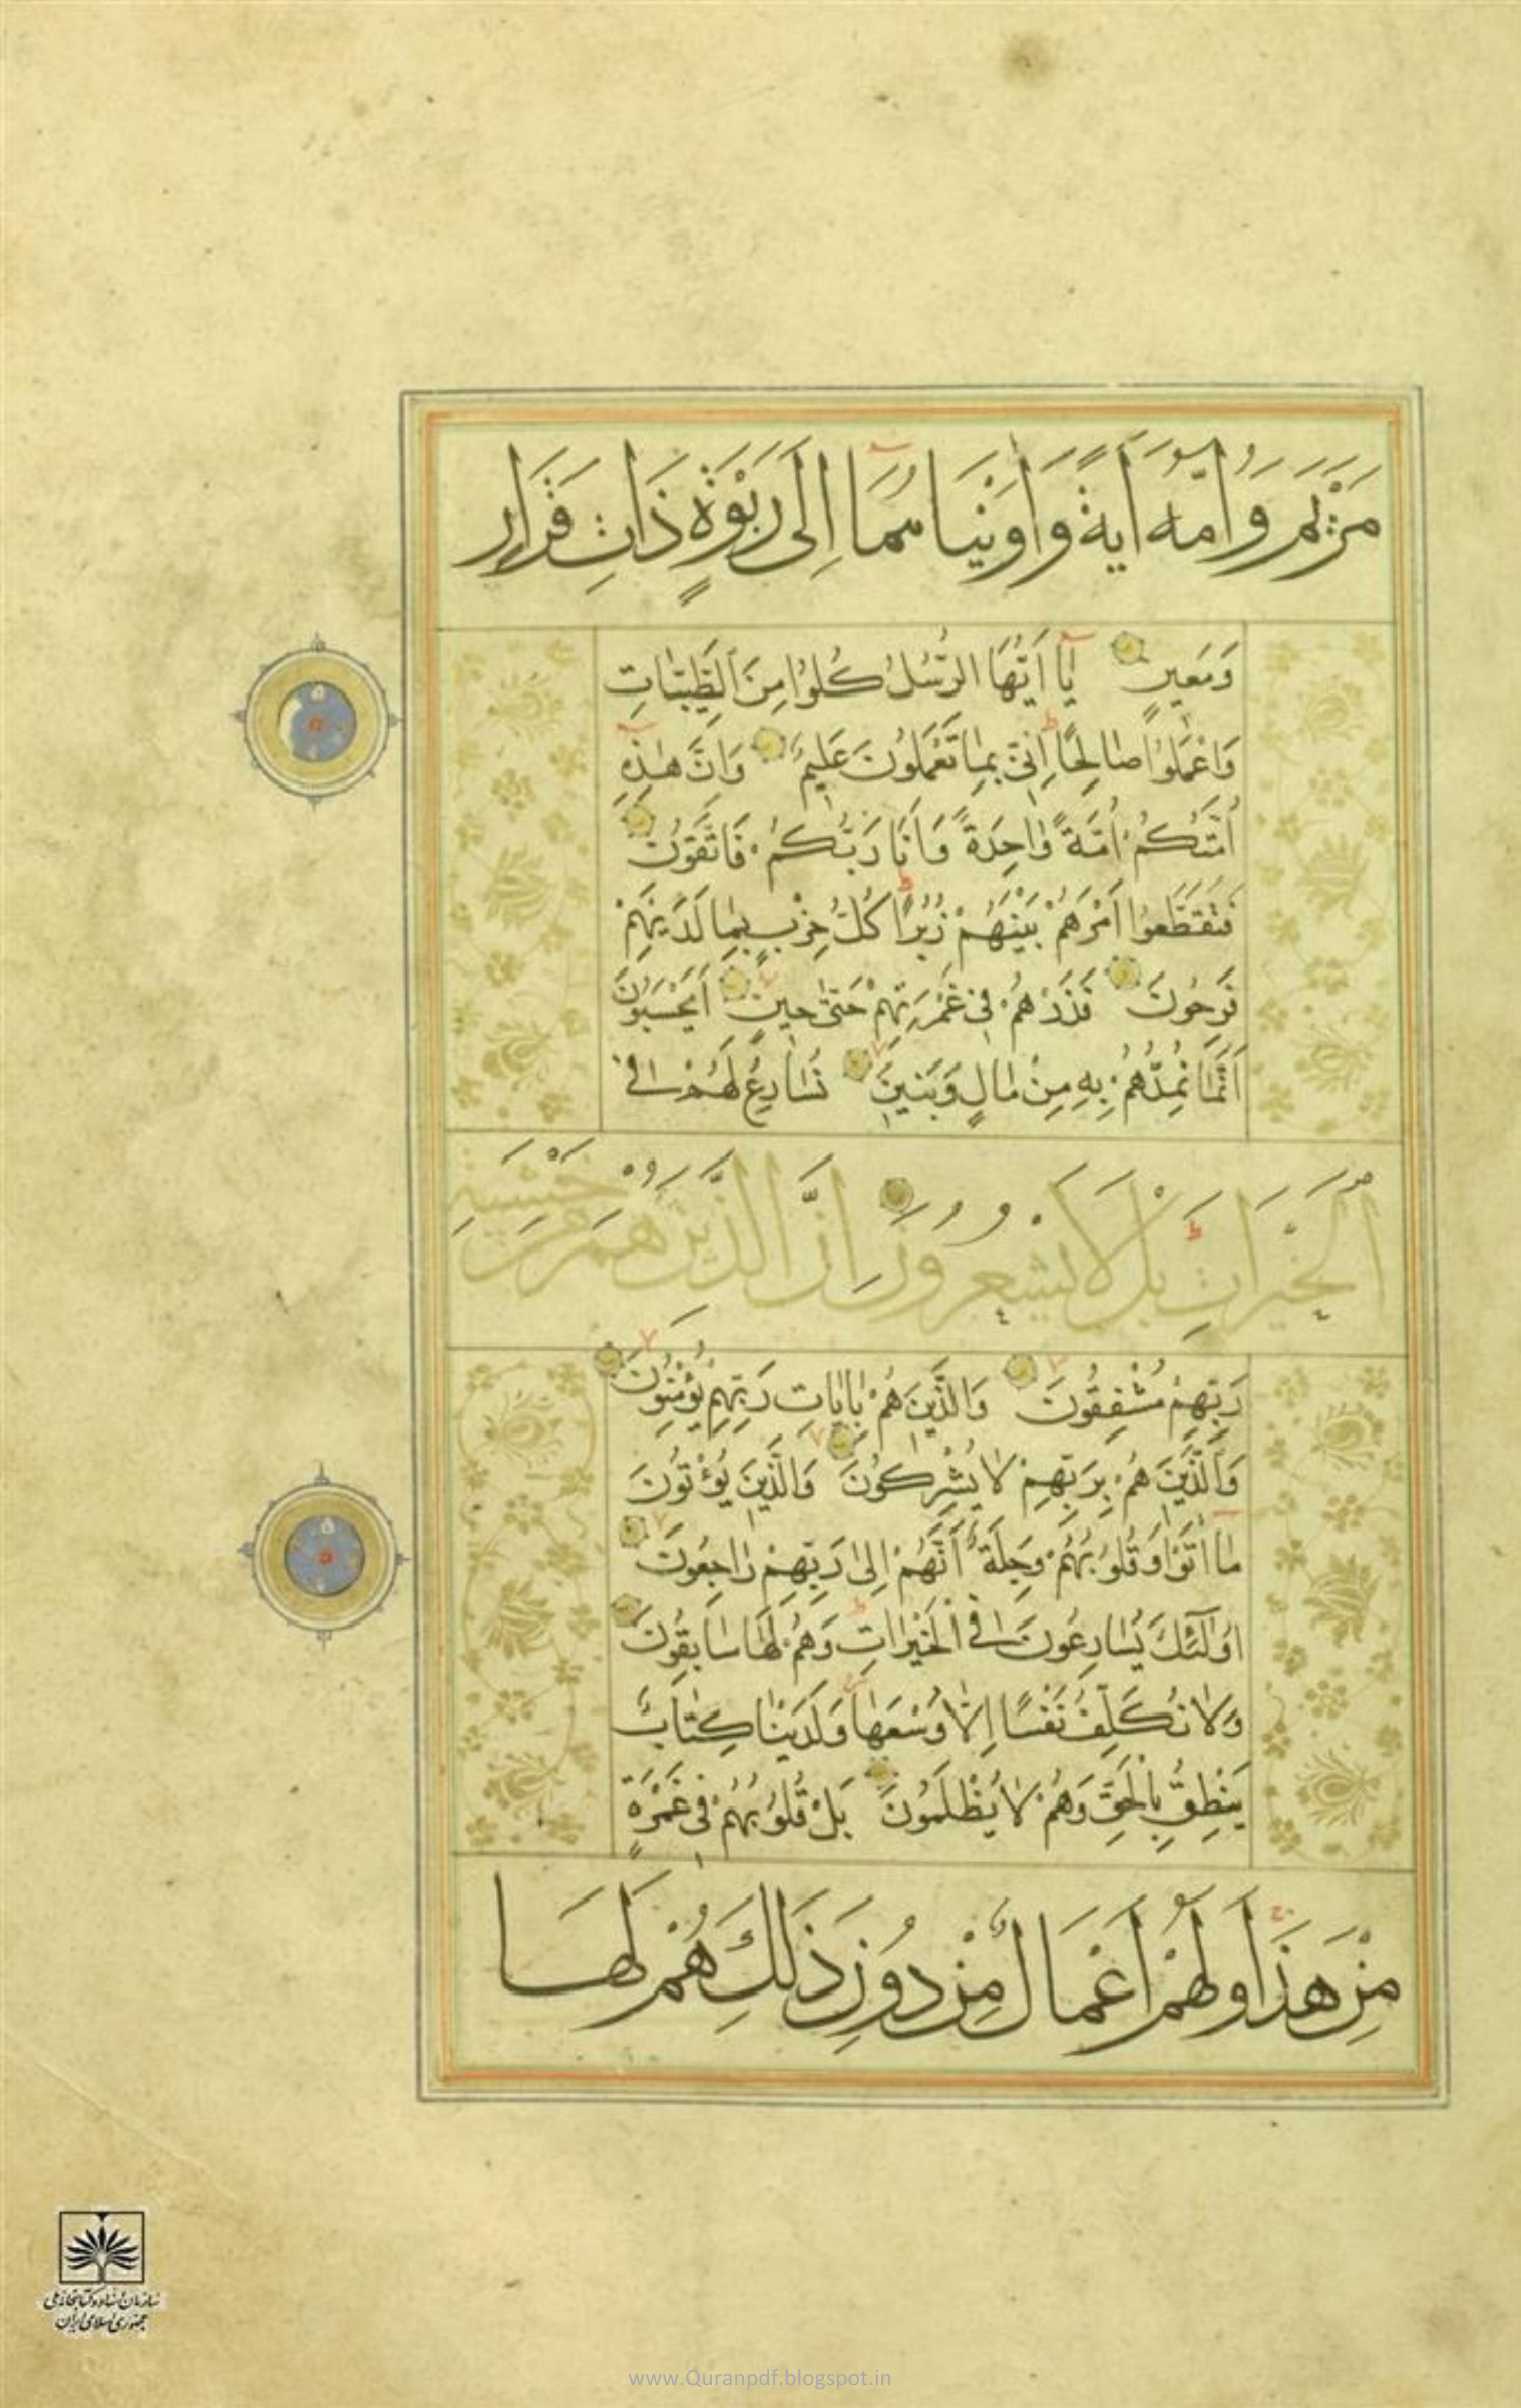 مَرْيَمَ وَاُمَّهُ اٰيَةً وَاٰوَيْنَاهُمَا اِلٰى رَبْوَةٍ ذَاتِ قَرَارٍ
وَمَعِينٍ يٰا اَيُّهَا الرُّسُلُ كُلُوا مِنَ الطَّيِّبٰاتِ
وَاعْمَلُوا صٰالِحًا اِنِّى بِمٰا تَعْمَلُونَ عَلِيمٌ وَاِنَّ هٰذِهِ
اُمَّتُكُمْ اُمَّةً وٰاحِدَةً وَاَنَا رَبُّكُمْ فَاتَّقُونِ
فَتَقَطَّعُوا اَمْرَهُمْ بَيْنَهُمْ زُبُرًا كُلُّ حِزْبٍ بِمٰا لَدَيْهِمْ
فَرِحُونَ فَذَرْهُمْ فِى غَمْرَتِهِمْ حَتّٰى حِينٍ اَيَحْسَبُونَ
اَنَّمٰا نُمِدُّهُمْ بِهِ مِنْ مٰالٍ وَبَنِينَ نُسٰارِعُ لَهُمْ فِى
الْخَيْرَاتِ بَلْ لَا يَشْعُرُونَ اِنَّ الَّذِينَ هُمْ مِنْ خَشْيَةِ
رَبِّهِمْ مُشْفِقُونَ وَالَّذِينَ هُمْ بِاٰيٰاتِ رَبِّهِمْ يُؤْمِنُونَ
وَالَّذِينَ هُمْ بِرَبِّهِمْ لٰا يُشْرِكُونَ وَالَّذِينَ يُؤْتُونَ
مٰا اٰتَوْا وَقُلُوبُهُمْ وَجِلَةٌ اَنَّهُمْ اِلىٰ رَبِّهِمْ رٰاجِعُونَ
اُولٰئِكَ يُسٰارِعُونَ فِى الْخَيْرٰاتِ وَهُمْ لَهٰا سٰابِقُونَ
وَلٰا نُكَلِّفُ نَفْسًا اِلّٰا وُسْعَهٰا وَلَدَيْنٰا كِتٰابٌ
يَنْطِقُ بِالْحَقِّ وَهُمْ لٰا يُظْلَمُونَ بَلْ قُلُوبُهُمْ فِى غَمْرَةٍ
مِنْ هٰذَا وَلَهُمْ اَعْمَالٌ مِنْ دُونِ ذٰلِكَ هُمْ لَهَا
سازمان اسناد و کتابخانه ملی
جمهوری اسلامی ایران
www.Quranpdf.blogspot.in